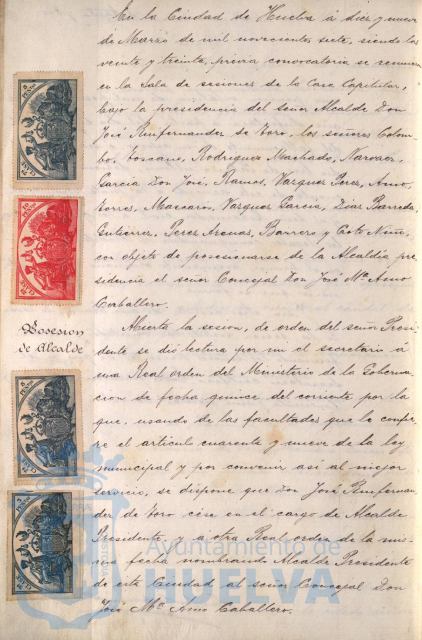 En la Ciudad de Huelva á diez y nueve
de Marzo de mil novecientos siete, siendo las
veinte y treinta, previa convocatoria se reunieron
en la Sala de sesiones de la Casa Capitular,
bajo la presidencia del señor Alcalde Don
José Rinfernandez de Toro, los señores Colom-
bo, Toscano, Rodriguez Machado, Narvaez,
Garcia Don José, Ramos, Vazquez Perez, Amo,
Torres, Mascaros, Vazquez Garcia, Diaz Barreda,
Gutierrez, Perez Arenas, Borrero y Coto Niño,
con objeto de posesionarse de la Alcaldia pre-
sidencia el señor Concejal Don José Mª Amo
Caballero.
Posesion
de Alcalde
Abierta la sesion, de orden del señor Presi-
dente se dió lectura por mi el secretario á
una Real orden del Ministerio de la Goberna-
cion de fecha quince del corriente por la
que, usando de las facultades que le confie-
re el articulo cuarenta y nueve de la ley
municipal y por convenir asi al mejor
servicio, se dispone que Don José Rinfernan-
dez de Toro cese en el cargo de Alcalde
Presidente, y a otra Real orden de la mis-
ma fecha nombrando Alcalde Presidente
de esta Ciudad al señor Concejal Don
José Mª Amo Caballero.
Ayuntamiento de
HUELVA